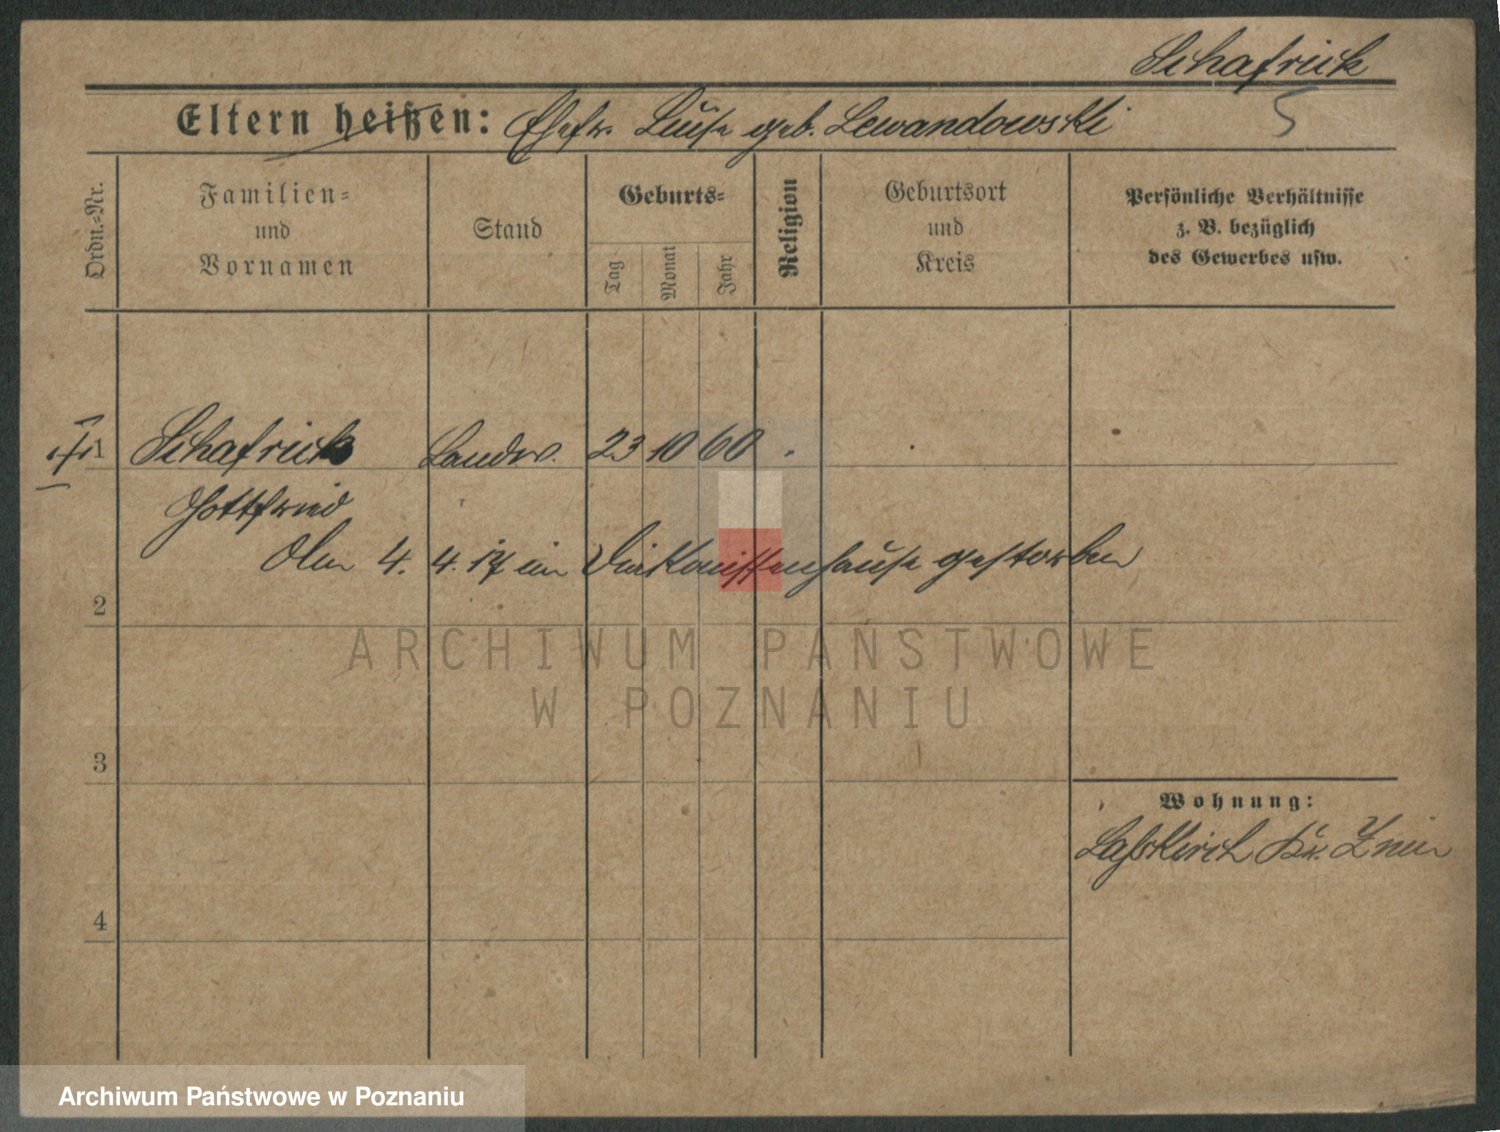 Schafrick
5
Eltern heißen: Ehefr. Luise geb. Lewandowski
Ordn.=Nr.
Familien=
und
Vornamen
Stand
Geburts=
Tag
Monat
Jahr
Religion
Geburtsort
und
Kreis
Persönliche Verhältnisse
z. B. bezüglich
des Gewerbes usw.
1 Schafrick Landw. 23 10 60
Gottfried
Am 4. 4. 17 im Diakonissenhause gestorben
2
ARCHIWUM PAŃSTWOWE
W POZNANIU
3
Wohnung:
Lasskirch Kr. Znin
4
Archiwum Państwowe w Poznaniu